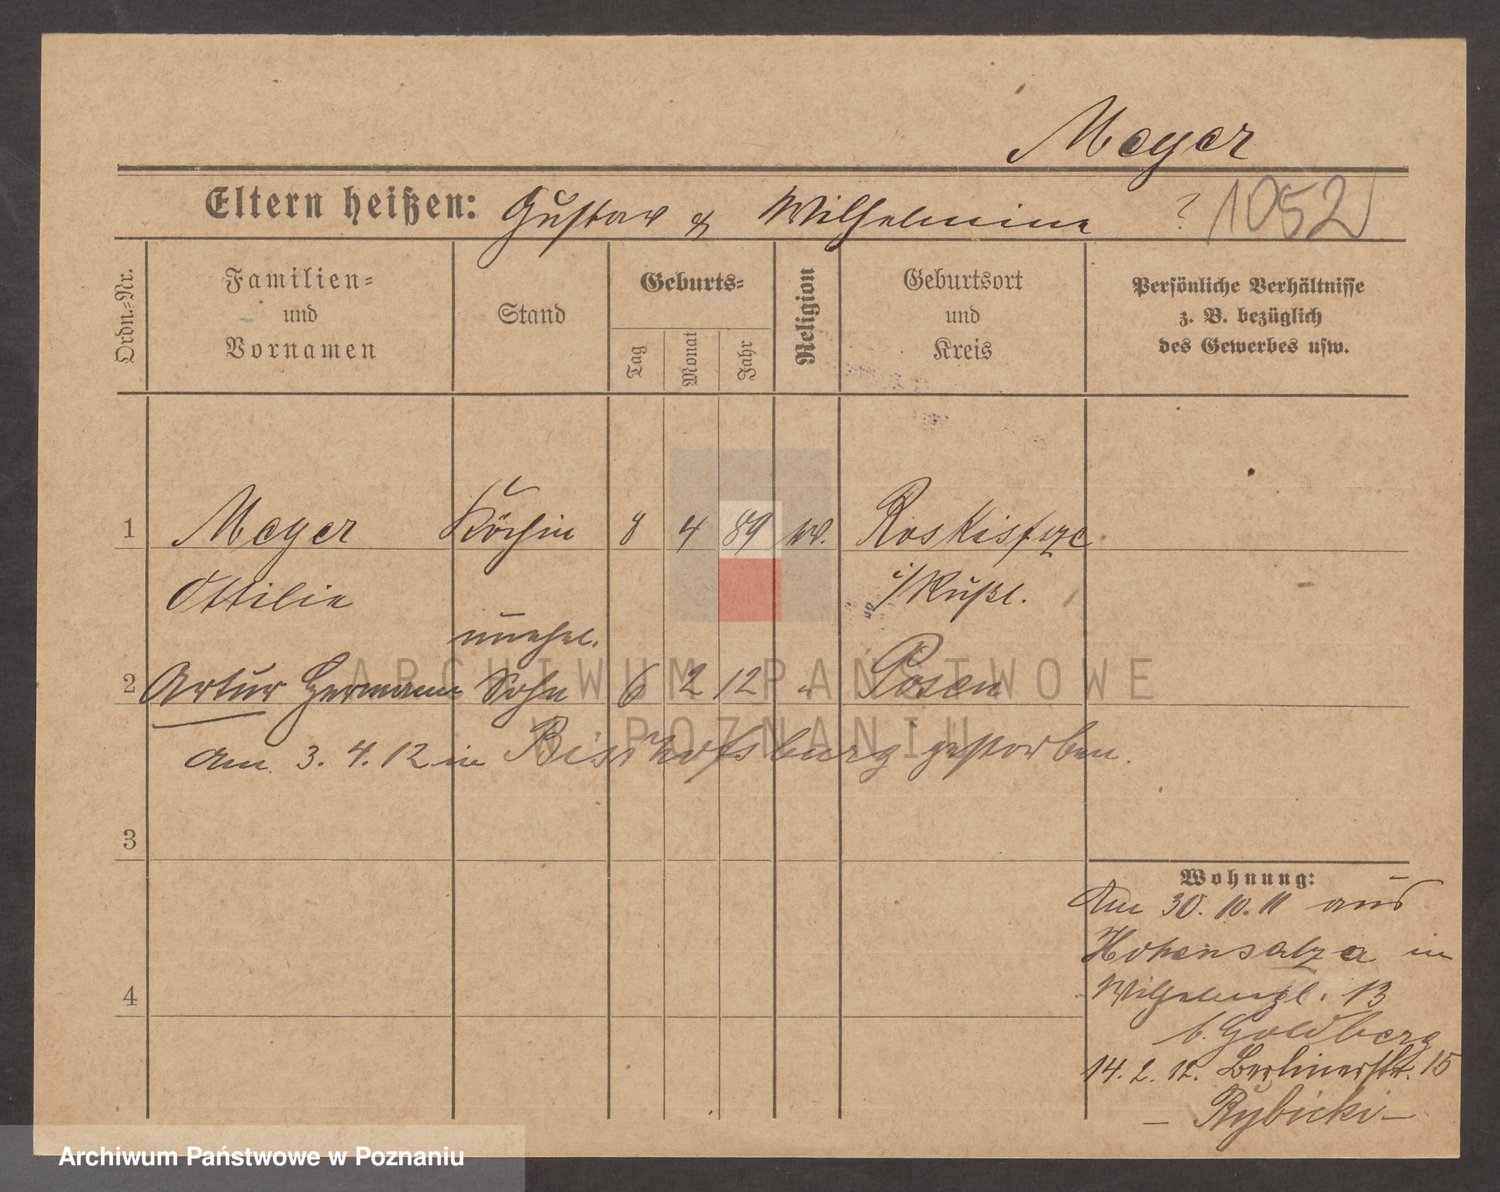 Meyer
Eltern heißen: Gustav & Wilhelmine ? 1052
Ordn.-Nr.
Familien-
und
Vornamen
Stand
Geburts-
Tag
Monat
Jahr
Religion
Geburtsort
und
Kreis
Persönliche Verhältnisse
z. B. bezüglich
des Gewerbes usw.
1 Meyer Köchin 8 4 89 Roskis
Ottilie i/Rußl.
unehel.
2 Artur Hermann Sohn 6 2 12 " Posen
Am 3. 4. 12 in Bischofsburg gestorben.
3
4
Wohnung:
Am 30. 10. 11 aus
Hohensalza in
Wilhelmpl. 13
b. Goldberg
14. 2. 12. Berlinerstr. 15
– Rybicki –
ARCHIWUM PAŃSTWOWE
W POZNANIU
Archiwum Państwowe w Poznaniu